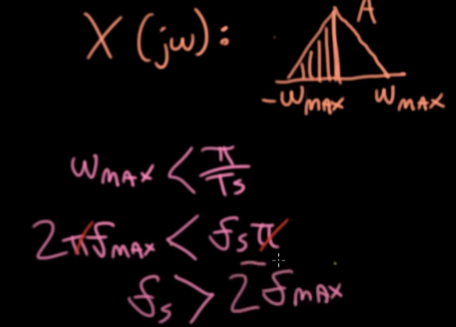 X(jω):
A
-ωMAX ωMAX
ωMAX < π/Ts
2πfMAX < fsπ
fs > 2fMAX